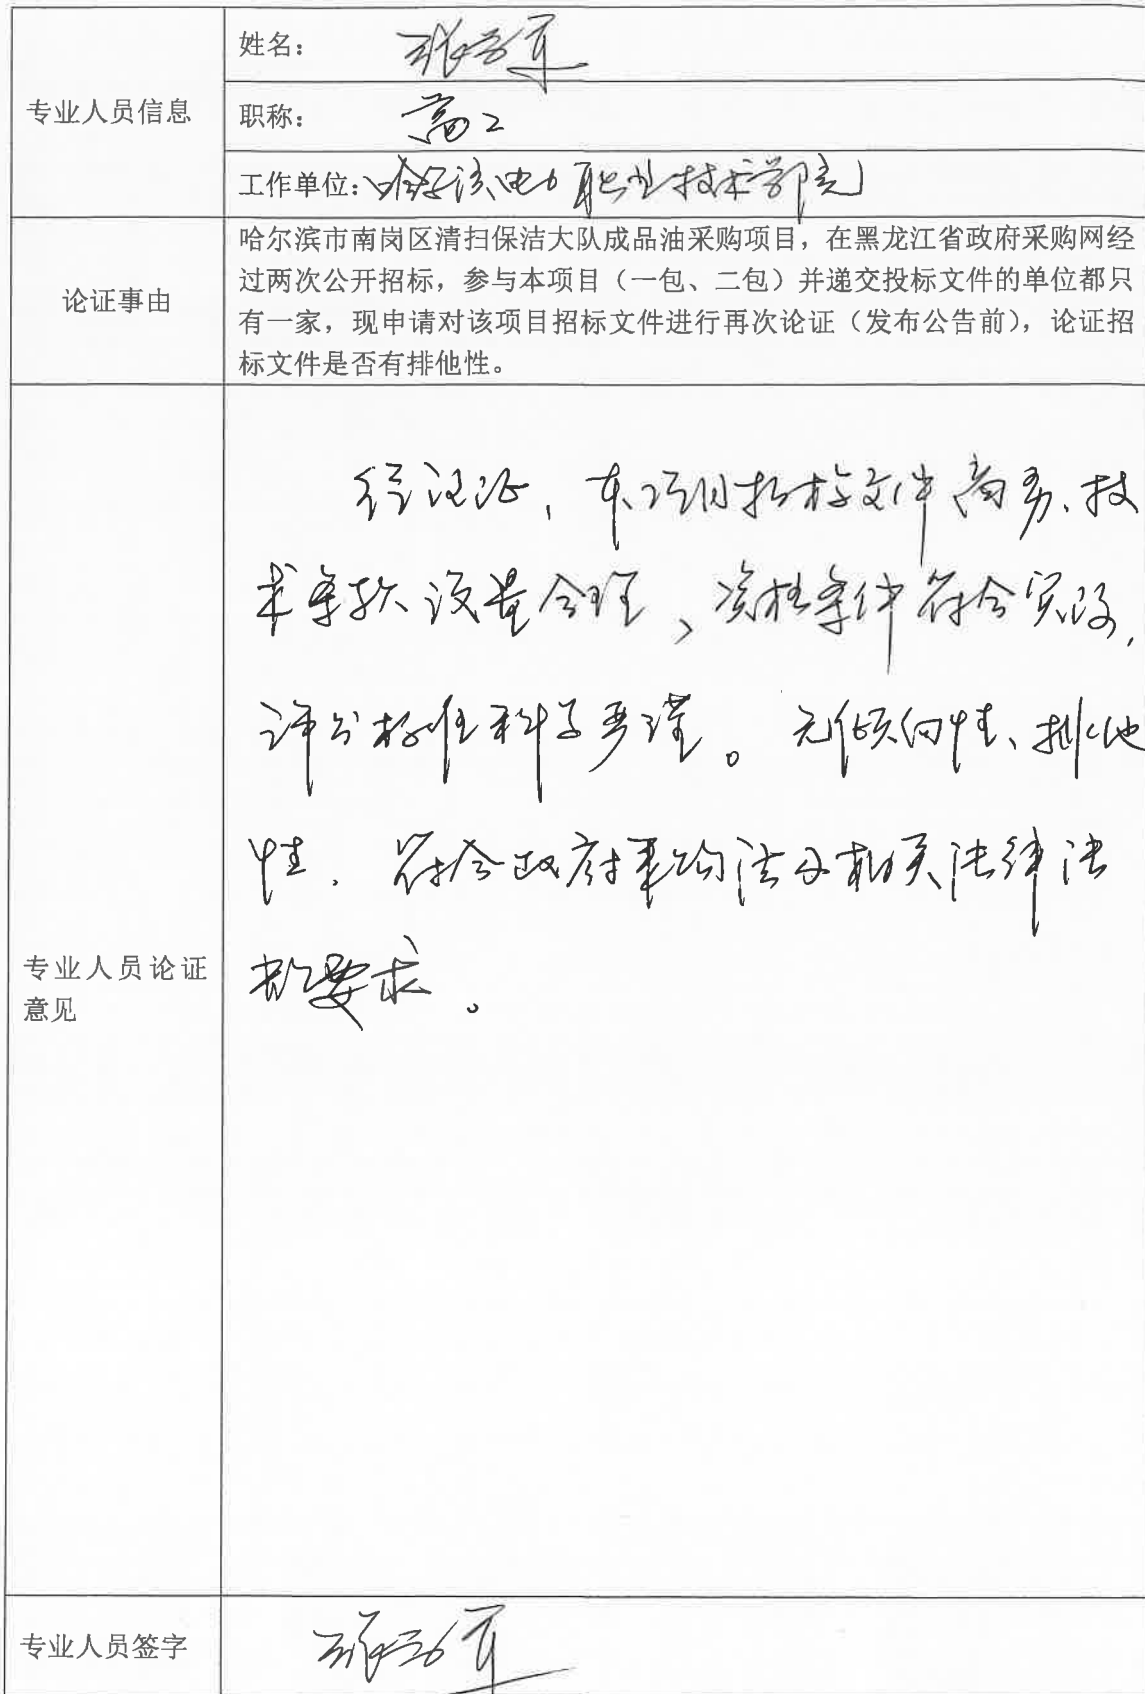 姓名：
专业人员信息
职称： 高工
工作单位：哈尔滨电力职业技术学院
哈尔滨市南岗区清扫保洁大队成品油采购项目，在黑龙江省政府采购网经
过两次公开招标，参与本项目（一包、二包）并递交投标文件的单位都只
论证事由
有一家，现申请对该项目招标文件进行再次论证（发布公告前），论证招
标文件是否有排他性。
经论证，本项目招标文件商务、技
术条款设置合理、资格条件符合实际，
评分标准科学严谨。无倾向性、排他
性．符合政府采购法及相关法律法
规要求。
专业人员论证
意见
专业人员签字